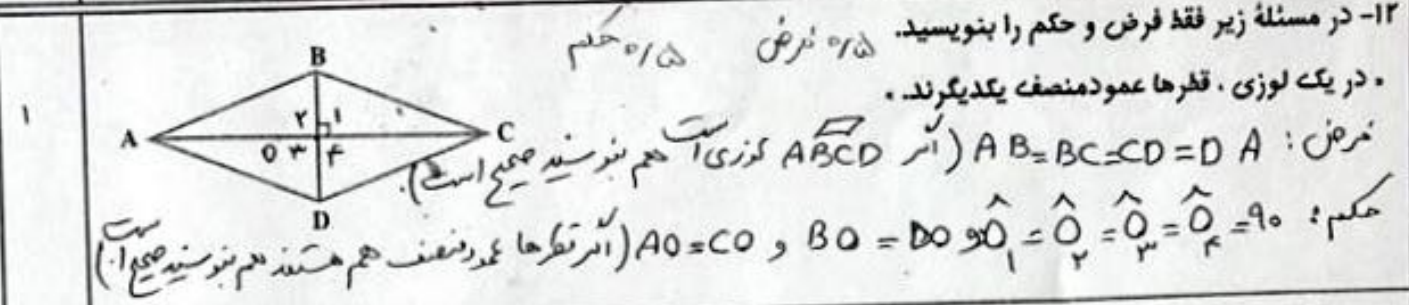 ۱۲- در مسئلهٔ زیر فقط فرض و حکم را بنویسید. ۰/۵ فرض ۰/۵ حکم
• در یک لوزی ، قطرها عمودمنصف یکدیگرند. •
فرض: AB=BC=CD=DA (اگر ABCD لوزی است هم بنویسید صحیح است).
حکم: Ô۱=Ô۲=Ô۳=Ô۴=۹۰ و BO=DO و AO=CO (اگر قطرها عمودمنصف هم هستند هم بنویسید صحیح است.)
۱
B
۲ ۱
A C
O ۳ ۴
D